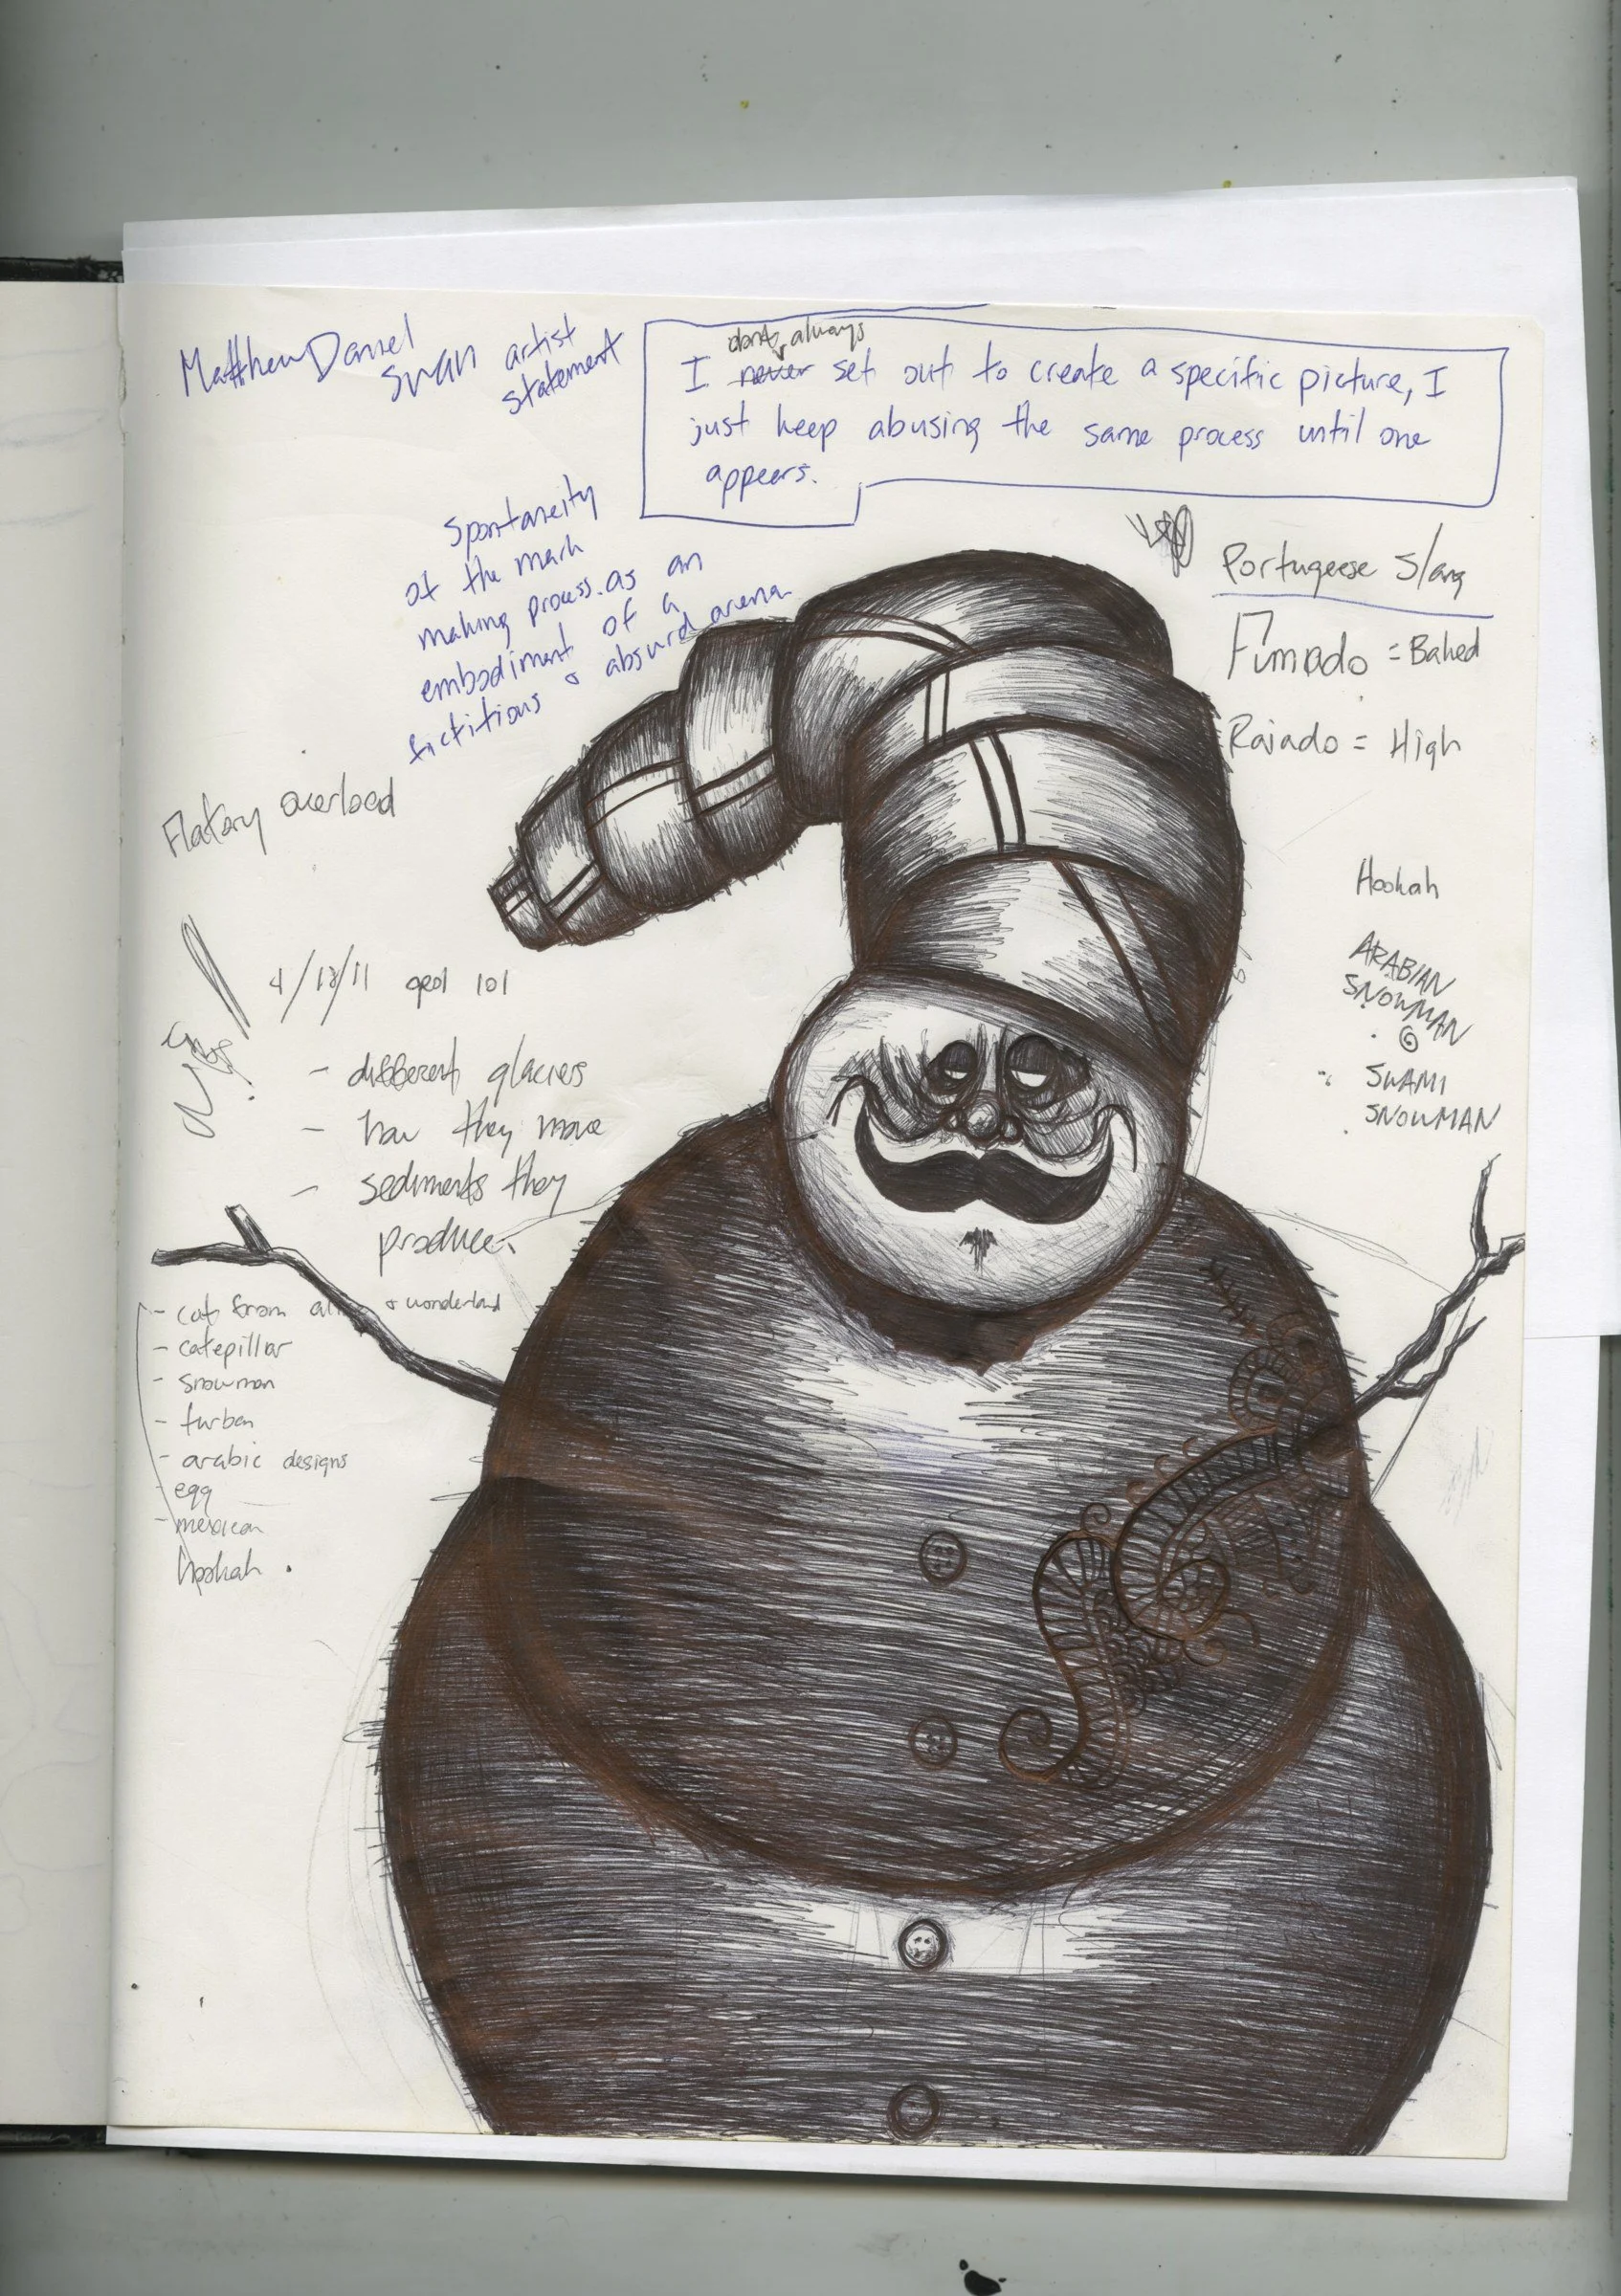 Matthew Daniel
Swan artist
statement
dont always
I never set out to create a specific picture, I
just keep abusing the same process until one
appears.
Spontaneity
of the mark
making process as an
embodiment of a
fictitious & absurd arena
Portugeese Slang
Fumado = Baked
Raiado = High
overload
4/18/11 geol 101
- different glaciers
- how they move
- sediments they
produce.
- cat from & wonderland
- catepillar
- snowman
- turban
- arabic designs
- egg
- mexican
hookah.
Hookah
ARABIAN
SNOWMAN
SWAMI
SNOWMAN